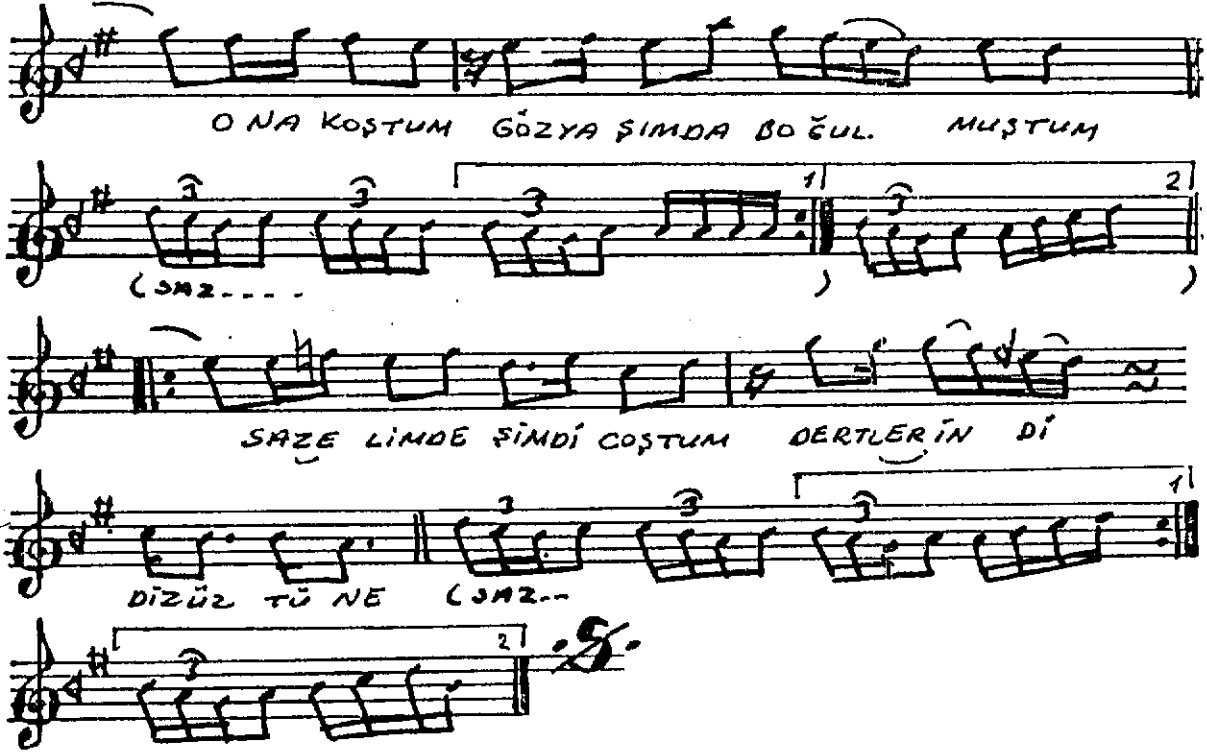 O NA KOŞTUM GÖZYA ŞIMDA BO ĞUL. MUŞTUM
3 3 3 1 3 2
(SAZ..... )  )
SAZE LİMDE ŞİMDİ COŞTUM DERTLERİN Dİ
3 3 3 1
DİZÜZ TÜ NE (SAZ..
3 2